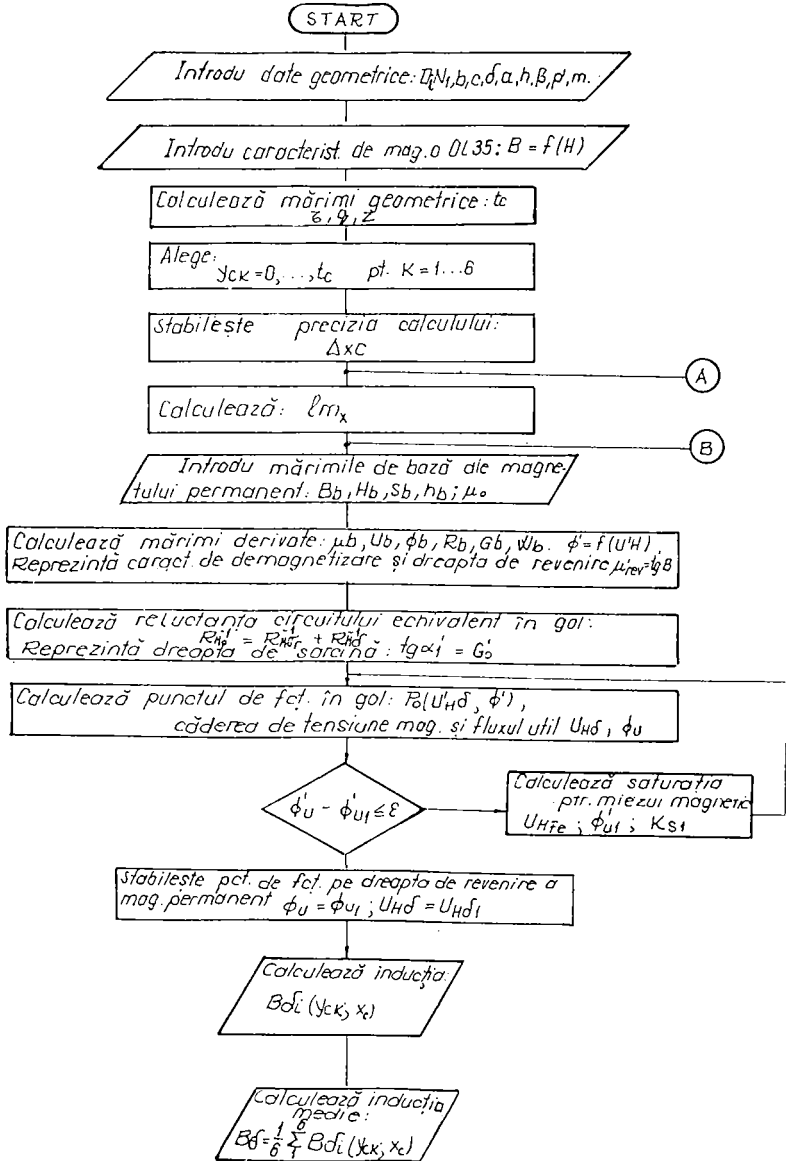 START
Introdu date geometrice: D,N1,b,c,δ,a,h,β,p,m.
Introdu caracterist. de mag.a OL35: B = f(H)
Calculează mărimi geometrice: tc
τ, q, z
Alege:
yck=0,...,tc pt. K=1...6
Stabilește precizia calculului:
Δxc
A
Calculează: lmx
B
Introdu mărimile de bază ale magne-
tului permanent: Bb, Hb, Sb, hb; μo
Calculează mărimi derivate: μb, Ub, ϕb, Rb, Gb, Wb. ϕ'=f(U'H),
Reprezintă caract. de demagnetizare și dreapta de revenire μ'rev=tgβ
Calculează reluctanța circuitului echivalent în gol:
Reprezintă dreapta de sarcină: tgα1' = Go'
Calculează punctul de fcț. în gol: Po(U'Hδ, ϕ'),
căderea de tensiune mag. și fluxul util UHδ, ϕu
ϕ'U - ϕ'U1 ≤ ε
Calculează saturația
ptr. miezul magnetic
UHFe ; ϕ'U1 ; KS1
Stabilește pct. de fcț. pe dreapta de revenire a
mag. permanent ϕU = ϕU1 ; UHδ = UHδ1
Calculează inducția:
Bδi (yck, xc)
Calculează inducția
medie:
Bδ = 1/6 Σ₁⁶ Bδi (yck, xc)